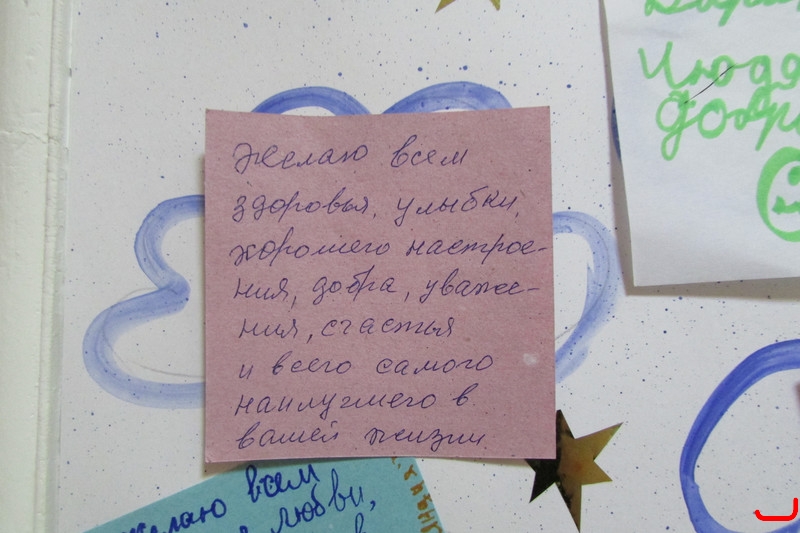 Желаю всем
здоровья, улыбки,
хорошего настрое-
ния, добра, уваже-
ния, счастья
и всего самого
наилучшего в
вашей жизни
желаю всем
любви,